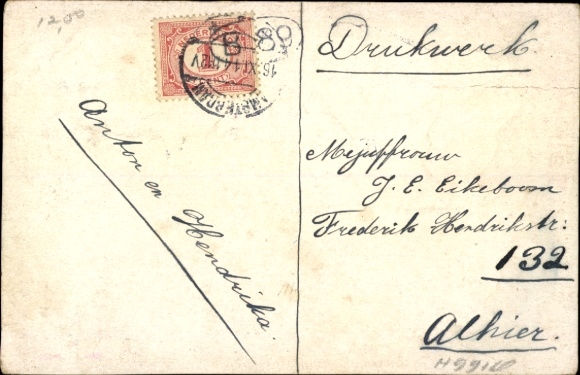 12,00
Drukwerk
Anton en Hendrika.
Mejuffrouw
J. E. Eikeboom
Frederik Hendrikstr:
132
Alhier.